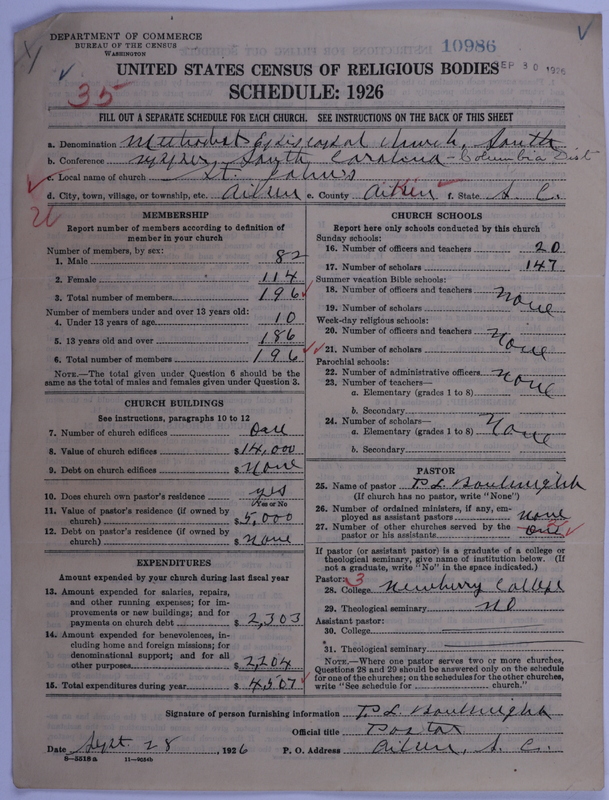 DEPARTMENT OF COMMERCE
BUREAU OF THE CENSUS
WASHINGTON
10986
SEP 30 1926
UNITED STATES CENSUS OF RELIGIOUS BODIES
SCHEDULE: 1926
35
FILL OUT A SEPARATE SCHEDULE FOR EACH CHURCH. SEE INSTRUCTIONS ON THE BACK OF THIS SHEET
a. Denomination Methodist Episcopal Church, South
b. Conference Upper South Carolina - Columbia Dist
c. Local name of church St. John's
d. City, town, village, or township, etc. Aiken e. County Aiken f. State S. C.
MEMBERSHIP
Report number of members according to definition of
member in your church
Number of members, by sex:
1. Male 82
2. Female 114
3. Total number of members 196
Number of members under and over 13 years old:
4. Under 13 years of age 10
5. 13 years old and over 186
6. Total number of members 196
NOTE.—The total given under Question 6 should be
same as the total of males and females given under Question 3.
CHURCH BUILDINGS
See instructions, paragraphs 10 to 12
7. Number of church edifices One
8. Value of church edifices $ 14,000
9. Debt on church edifices $ None
10. Does church own pastor's residence yes
Yes or No
11. Value of pastor's residence (if owned by
church) $ 5,000
12. Debt on pastor's residence (if owned by
church) $ None
EXPENDITURES
Amount expended by your church during last fiscal year
13. Amount expended for salaries, repairs,
and other running expenses; for im-
provements or new buildings; and for
payments on church debt $ 2,303
14. Amount expended for benevolences, in-
cluding home and foreign missions; for
denominational support; and for all
other purposes $ 2,204
15. Total expenditures during year $ 4,507
CHURCH SCHOOLS
Report here only schools conducted by this church
Sunday schools:
16. Number of officers and teachers 20
17. Number of scholars 147
Summer vacation Bible schools:
18. Number of officers and teachers None
19. Number of scholars
Week-day religious schools:
20. Number of officers and teachers None
21. Number of scholars
Parochial schools:
22. Number of administrative officers None
23. Number of teachers—
a. Elementary (grades 1 to 8)
b. Secondary
24. Number of scholars—
a. Elementary (grades 1 to 8) None
b. Secondary
PASTOR
25. Name of pastor
(If church has no pastor, write "None")
26. Number of ordained ministers, if any, em-
ployed as assistant pastors None
27. Number of other churches served by the
pastor or his assistants
If pastor (or assistant pastor) is a graduate of a college or
theological seminary, give name of institution below. (If
not a graduate, write "No" in the space indicated.)
Pastor: 3
28. College Newberry College
29. Theological seminary No
Assistant pastor:
30. College
31. Theological seminary
NOTE.—Where one pastor serves two or more churches,
Questions 28 and 29 should be answered only on the schedule
for one of the churches; on the schedules for the other churches,
write "See schedule for church."
Signature of person furnishing information
Official title Pastor
Date Sept. 28, 1926 P. O. Address Aiken, S. C.
8—5518 a 11—9034b